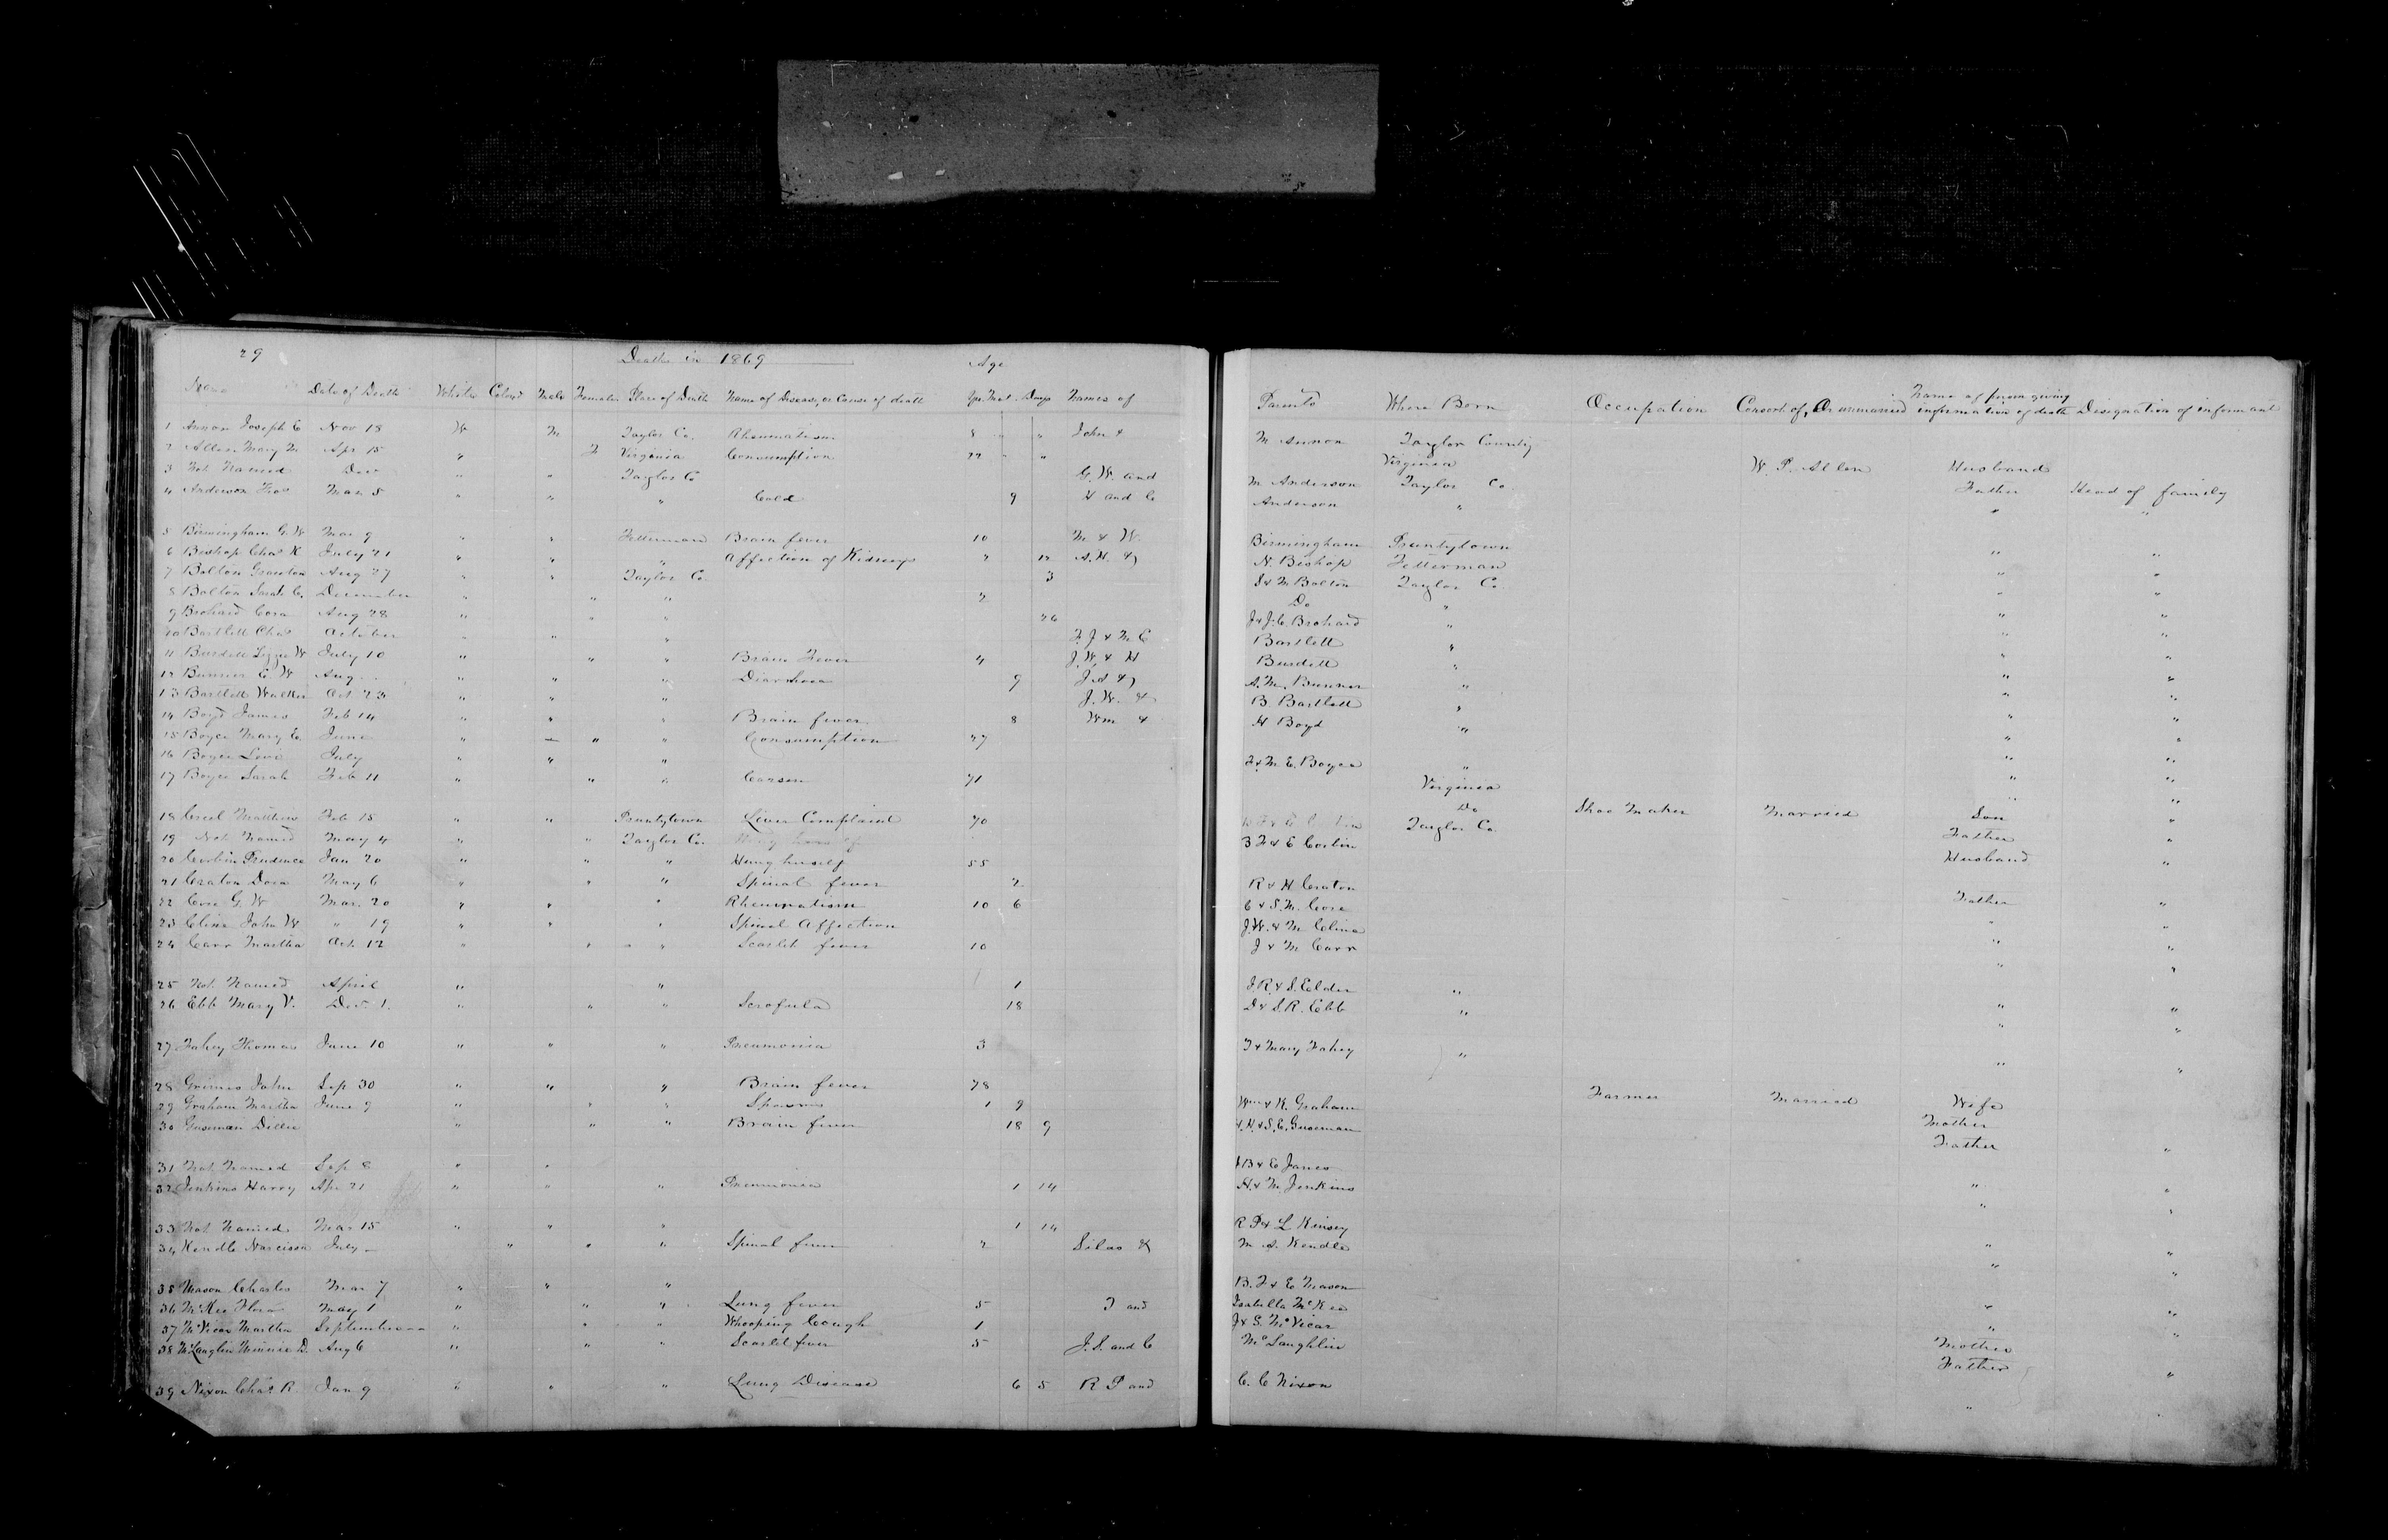 29 Deaths in 1869 Age
Name Date of Death White Colored Male Female Place of Death Name of Disease, or Cause of death Yrs. Days Names of
1 Annon Joseph E Nov 18 W M Taylor Co. Rheumatism 8 " " John &
2 Allen Mary M Apr 15 " F Virginia Consumption " "
3 Not Named Dec " " Taylor Co G. W. and
4 Anderson Mar 5 " " " Cold 9 H and C
5 Birmingham G. W Mar 9 " " Fetterman Brain fever 10 M & W.
6 Bishop Chas K July 21 " " " Affection of Kidneys " 12 A. H. &
7 Bolton Granton Aug 27 " " Taylor Co. 3
8 Bolton Sarah C. December " " " 2
9 Brohard Cora Aug 28 " " " 26
10 Bartlett Chas October " " " F. J & M C
11 Burdett Lizzie W July 10 " " " Brain Fever 4 J. W. & H
12 Bunner E. W Aug " " " Diarrhoea 9 J. A &
13 Bartlett Walter Oct 23 " " " J. W. &
14 Boyd James Feb 14 " " " Brain fever 8 Wm &
15 Boyce Mary E. June " " " Consumption 27
16 Boyce Levi July " " "
17 Boyce Sarah Feb 11 " " " 71
18 Creel Matthew Feb 15 " " Pruntytown Liver Complaint 70
19 Not Named May 4 " " Taylor Co.
20 Corbin Prudence Jan 20 " " " Hung herself 55
21 Craton Dora May 6 " " " Spinal fever 2
22 Core G. W Mar. 20 " " " Rheumatism 10 6
23 Cline John W " 19 " " " Spinal Affection
24 Carr Martha Oct. 12 " " " Scarlet fever 10
25 Not Named April " " 1
26 Ebb Mary V. Dec. 1. " " " Scrofula 18
27 Fahey Thomas June 10 " " " Pneumonia 3
28 Grimes John Sep 30 " " " Brain fever 78
29 Graham Martha June 9 " " " Spasms 1 9
30 Guseman Dillie " " " Brain fever 18 9
31 Not Named Sep 8 " "
32 Jenkins Harry Apr 21 " " " Pneumonia 1 14
33 Not Named Mar 15 " " " 1 14
34 Kendle Narcissa July " " " Spinal fever 2 Silas &
35 Mason Charles Mar 7 " " "
36 McKee Flora May 1 " " " Lung fever 5 T and
37 McVicar Martha September " " " Whooping Cough 1
38 McLauglin Minnie D. Aug 6 " " " Scarlet fever 5 J. S. and C
39 Nixon Chas R. Jan 9 " " " Lung Disease 6 5 R P and
Name of person giving
Parents Where Born Occupation Consort of, Or unmarried information of death Designation of informant
M Annon Taylor County
Virginia W. P. Allen Husband
M Anderson Taylor Co. Father Head of family
Anderson " " "
Birmingham Pruntytown " "
N. Bishop Fetterman " "
J & M Bolton Taylor Co. " "
Do " " "
J & J. C Brohard " " "
Bartlett " " "
Burdett " " "
A. M. Bunner " " "
B. Bartlett " " "
H Boyd " " "
F & M E. Boyce " " "
Virginia " "
Do Shoe Maker Married Son "
Taylor Co. Father
B F & E Corbin Husband "
R & H Craton
C & S. M. Core Father "
J. W. & M Cline " "
J & M Carr " "
J. R. & S. Elder "
D & S. R. Ebb " " "
T & Mary Fahey " " "
Farmer Married Wife
Wm & K. Graham Mother
A. H. & S. E. Guseman Father "
J B & E Jones
H. & M. Jenkins " "
R P & L Kinsey
M A. Kendle " "
B. F & E Mason
Isabella McKee " "
J & S. McVicar " "
McLaughlin Mother
Father "
C. C Nixon "